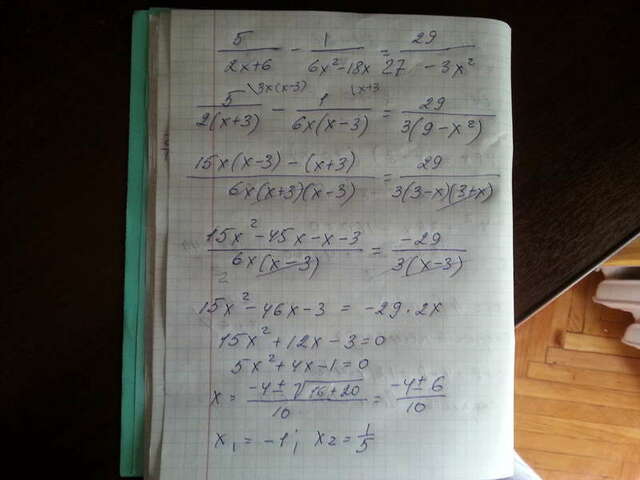 5/(2x+6) - 1/(6x²-18x) = 29/(27-3x²)
5/(2(x+3)) \3x(x-3) - 1/(6x(x-3)) \x+3 = 29/(3(9-x²))
(15x(x-3)-(x+3))/(6x(x+3)(x-3)) = 29/(3(3-x)(3+x))
(15x²-45x-x-3)/(6x(x-3)) = -29/(3(x-3))
2
15x²-46x-3 = -29·2x
15x²+12x-3=0
5x²+4x-1=0
x = (-4±√(16+20))/10 = (-4±6)/10
x₁ = -1; x₂ = 1/5